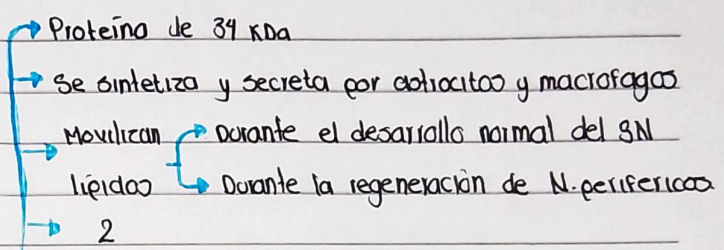 Proteína de 34 KDa
Se sintetiza y secreta por astrocitos y macrofagos
Movilizan
Durante el desarrollo normal del SN
lípidos
Durante la regeneración de N. perifericos
2